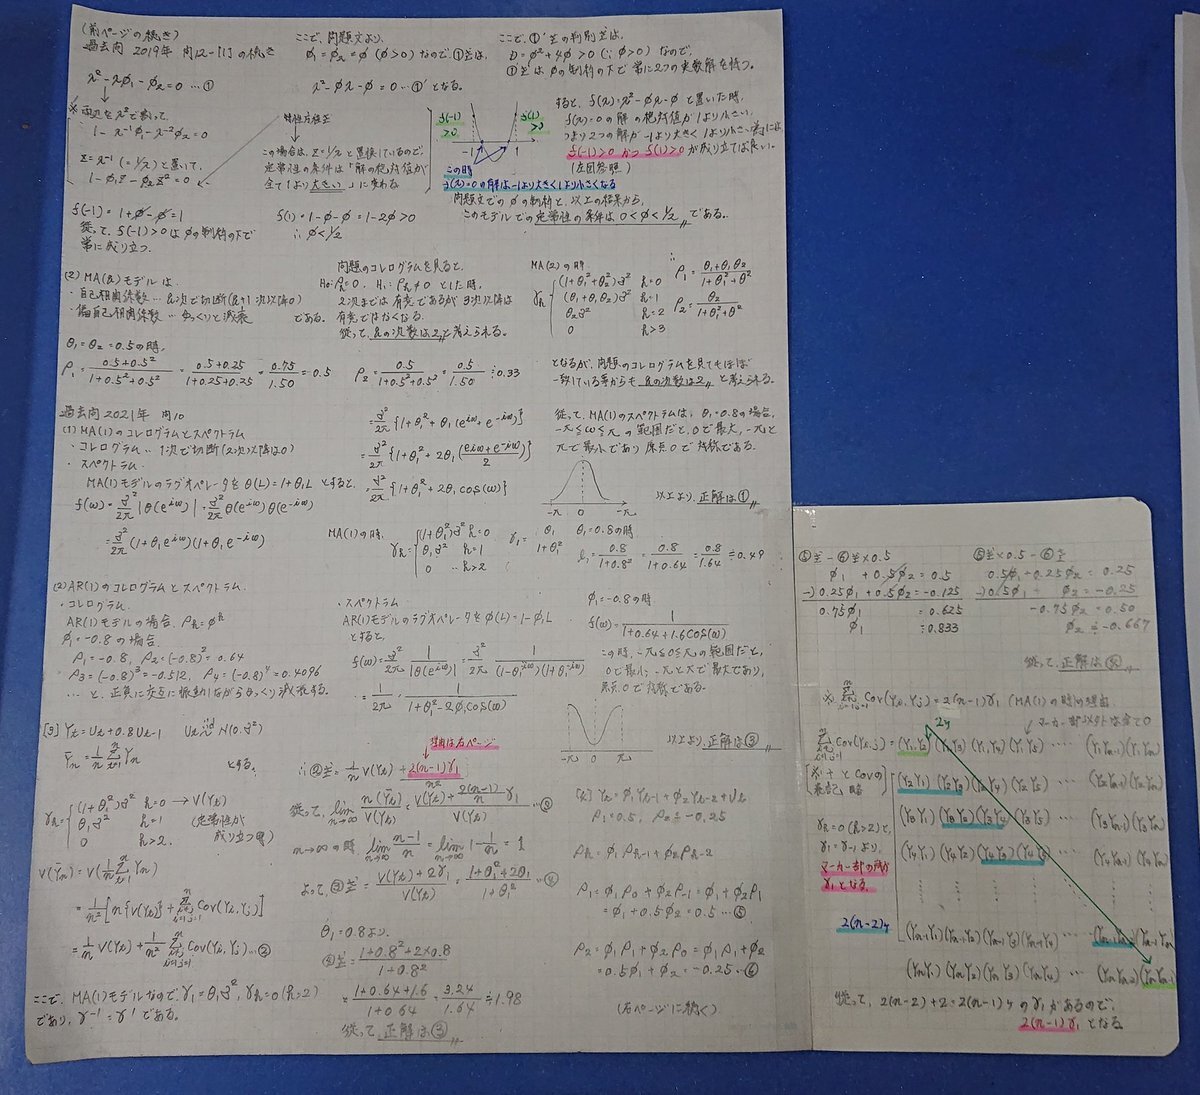 (前ページの続き)
過去問 2019年 問12-[1]の続き
x²-xφ₁-φ₂=0 …①
※両辺をx²で割って、
1-x⁻¹φ₁-x⁻²φ₂=0
z=x⁻¹(=1/x)と置いて、
1-φ₁z-φ₂z²=0
特性方程式
この場合は、z=1/xと置換しているので、
定常性の条件は「解の絶対値が
全て1より大きい」に変わる
ここで、問題文より、
φ₁=φ₂=φ (φ>0)なので①式は、
x²-φx-φ=0 …①'となる。
ここで、①'式の判別式は、
D=φ²+4φ>0 (∵φ>0) なので、
①'式はφの制約の下で常に2つの実数解を持つ。
すると、f(x)=x²-φx-φと置いた時、
f(x)=0の解の絶対値が1より小さい、
つまり2つの解が-1より大きく1より小さい為には
f(-1)>0 かつ f(1)>0が成り立てば良い。
(左図参照)
f(-1)
>0
f(1)
>0
-1
1
この時
f(x)=0の解は-1より大きく1より小さくなる
f(-1)=1+φ-φ=1
従って、f(-1)>0はφの制約の下で
常に成り立つ。
f(1)=1-φ-φ=1-2φ>0
∴φ<1/2
問題文でのφの制約と、以上の結果から、
このモデルでの定常性の条件は0<φ<1/2 である。
(2) MA(k)モデルは、
・自己相関係数…k次で切断(k+1次以降0)
・偏自己相関係数…ゆっくりと減衰
である。
問題のコレログラムを見ると、
H₀:ρₕ=0, H₁:ρₕ≠0 とした時、
2次までは有意であるが3次以降は
有意ではなくなる。
従って、kの次数は2と考えられる。
MA(2)の時、
γₕ={(1+θ₁²+θ₂²)σ² h=0
(θ₁+θ₁θ₂)σ² h=1
θ₂σ² h=2
0 h>3
∴ρ₁=(θ₁+θ₁θ₂)/(1+θ₁²+θ²)
ρ₂=θ₂/(1+θ₁²+θ²)
θ₁=θ₂=0.5の時、
ρ₁=(0.5+0.5²)/(1+0.5²+0.5²)=(0.5+0.25)/(1+0.25+0.25)=0.75/1.50=0.5
ρ₂=0.5/(1+0.5²+0.5²)=0.5/1.50≒0.33
となるが、問題のコレログラムを見てもほぼ
一致している事からもkの次数は2と考えられる。
過去問2021年 問10
(1) MA(1)のコレログラムとスペクトラム
・コレログラム… 1次で切断(2次以降は0)
・スペクトラム
MA(1)モデルのラグオペレータをθ(L)=1+θ₁Lとすると、
f(ω)=σ²/2π |θ(e^iω)|=σ²/2π θ(e^iω)θ(e^-iω)
=σ²/2π (1+θ₁e^iω)(1+θ₁e^-iω)
=σ²/2π {1+θ₁²+θ₁(e^iω+e^-iω)}
=σ²/2π {1+θ₁²+2θ₁(e^iω+e^-iω)/2}
=σ²/2π {1+θ₁²+2θ₁cos(ω)}
従って、MA(1)のスペクトラムは、θ₁=0.8の場合、
-π≦ω≦πの範囲だと、0で最大、-πと
πで最小であり原点0で対称である。
-π 0 -π
以上より、正解は①
MA(1)の時、
γₕ={(1+θ₁²)σ² h=0
θ₁σ² h=1
0 …h>2
γ₁=θ₁/(1+θ₁²)
θ₁=0.8の時
=0.8/(1+0.8²)=0.8/(1+0.64)=0.8/1.64≒0.49
(2) AR(1)のコレログラムとスペクトラム
・コレログラム
AR(1)モデルの場合、ρₕ=φʰ
φ₁=-0.8の場合、
ρ₁=-0.8, ρ₂=(-0.8)²=0.64
ρ₃=(-0.8)³=-0.512, ρ₄=(-0.8)⁴=0.4096
…と、正負に交互に振れながらゆっくり減衰する。
・スペクトラム
AR(1)モデルのラグオペレータをφ(L)=1-φ₁L
とすると、
f(ω)=σ²/2π 1/|θ(e^iω)|=σ²/2π 1/(1-θ₁^iω)(1+θ₁^-iω)
=1/2π・1/(1+θ₁²-2φ₁cos(ω))
φ₁=-0.8の時
f(ω)=1/(1+0.64+1.6cos(ω))
この時、-π≦0≦πの範囲だと、
0で最小、-πとπで最大であり、
原点0で対称である。
-π 0 π
以上より、正解は③
[3] Yₜ=Uₜ+0.8Uₜ₋₁ Uₜ iid~N(0,σ²)
Ȳₙ=1/n Σ Yₙ とする。
γₕ={(1+θ₁²)σ² h=0 → V(Yₜ)
θ₁σ² h=1
0 h>2
(定常性が
成り立つ時)
V(Ȳₙ)=V(1/n Σ Yₙ)
=1/n²[n{V(Yₜ)}+ΣCov(Yᵢ,Yⱼ)]
=1/n V(Yₜ)+1/n² ΣCov(Yᵢ,Yⱼ)…②
ここで、MA(1)モデルなので、γ₁=θ₁σ², γₕ=0(h>2)
であり、γ⁻¹=γ¹である。
理由は右ページ
∴②式=1/n V(Yₜ)+2(n-1)γ₁/n²
従って、lim n→∞ n(Ȳₙ)/V(Yₜ)=(V(Yₜ)+2(n-1)/n γ₁)/V(Yₜ)…③
n→∞の時、lim n→∞ (n-1)/n=lim n→∞ 1-1/n=1
よって③式=(V(Yₜ)+2γ₁)/V(Yₜ)=(1+θ₁²+2θ₁)/(1+θ₁²)…④
θ₁=0.8より、
④式=(1+0.8²+2×0.8)/(1+0.8²)
=(1+0.64+1.6)/(1+0.64)=3.24/1.64≒1.98
従って、正解は③
[4] Yₜ=φ₁Yₜ₋₁+φ₂Yₜ₋₂+Uₜ
ρ₁=0.5, ρ₂=-0.25
ρₕ=φ₁ρₕ₋₁+φ₂ρₕ₋₂
ρ₁=φ₁ρ₀+φ₂ρ₋₁=φ₁+φ₂ρ₁
=φ₁+0.5φ₂=0.5…⑤
ρ₂=φ₁ρ₁+φ₂ρ₀=φ₁ρ₁+φ₂
=0.5φ₁+φ₂=-0.25…⑥
(右ページに続く)
⑤式-⑥式×0.5
φ₁+0.5φ₂=0.5
-)0.25φ₁+0.5φ₂=-0.125
0.75φ₁=0.625
φ₁≒0.833
⑤式×0.5-⑥式
0.5φ₁+0.25φ₂=0.25
-)0.5φ₁+φ₂=-0.25
-0.75φ₂=0.50
φ₂≒-0.667
従って、正解は⑤
※ΣCov(Yᵢ,Yⱼ)=2(n-1)γ₁ (MA(1)の時)の理由
マーカー部以外は全て0
2γ₁
ΣCov(Yᵢ,Yⱼ)=
(Y₁Y₂)(Y₁Y₃)(Y₁Y₄)(Y₁Y₅)……(Y₁Yₙ₋₁)(Y₁Yₙ)
(Y₂Y₁)(Y₂Y₃)(Y₂Y₄)(Y₂Y₅)…(Y₂Yₙ₋₁)(Y₂Yₙ)
(Y₃Y₁)(Y₃Y₂)(Y₃Y₄)(Y₃Y₅)…(Y₃Yₙ₋₁)(Y₃Yₙ)
(Y₄Y₁)(Y₄Y₂)(Y₄Y₃)(Y₄Y₅)…(Y₄Yₙ₋₁)(Y₄Yₙ)
[※+とCovの
表記略]
γₕ=0(h>2)と、
γ₁=γ₋₁より、
マーカー部の所が
γ₁となる。
2(n-2)γ₁
(Yₙ₋₁Y₁)(Yₙ₋₁Y₂)(Yₙ₋₁Y₃)(Yₙ₋₁Y₄)…(Yₙ₋₁Yₙ₋₂)(Yₙ₋₁Yₙ)
(YₙY₁)(YₙY₂)(YₙY₃)(YₙY₄)…(YₙYₙ₋₂)(YₙYₙ₋₁)
従って、2(n-2)+2=2(n-1)ケのγ₁があるので、
2(n-1)γ₁となる